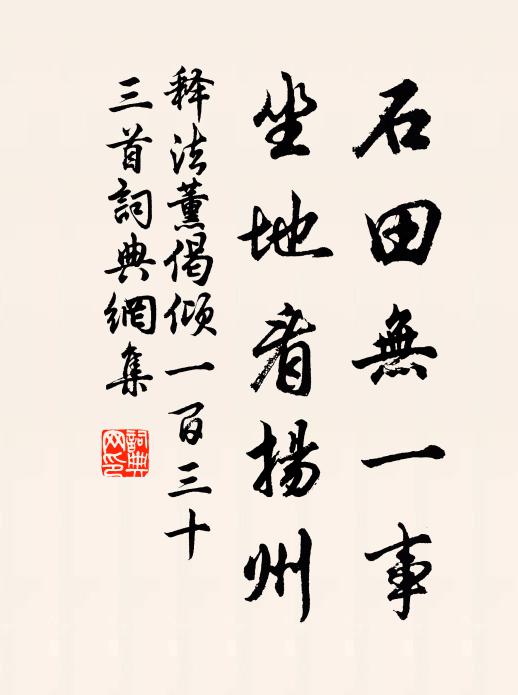 石田無一事
坐地看揚州
释法薰偈倾一百三十
三首詞典網集
詞典
网印